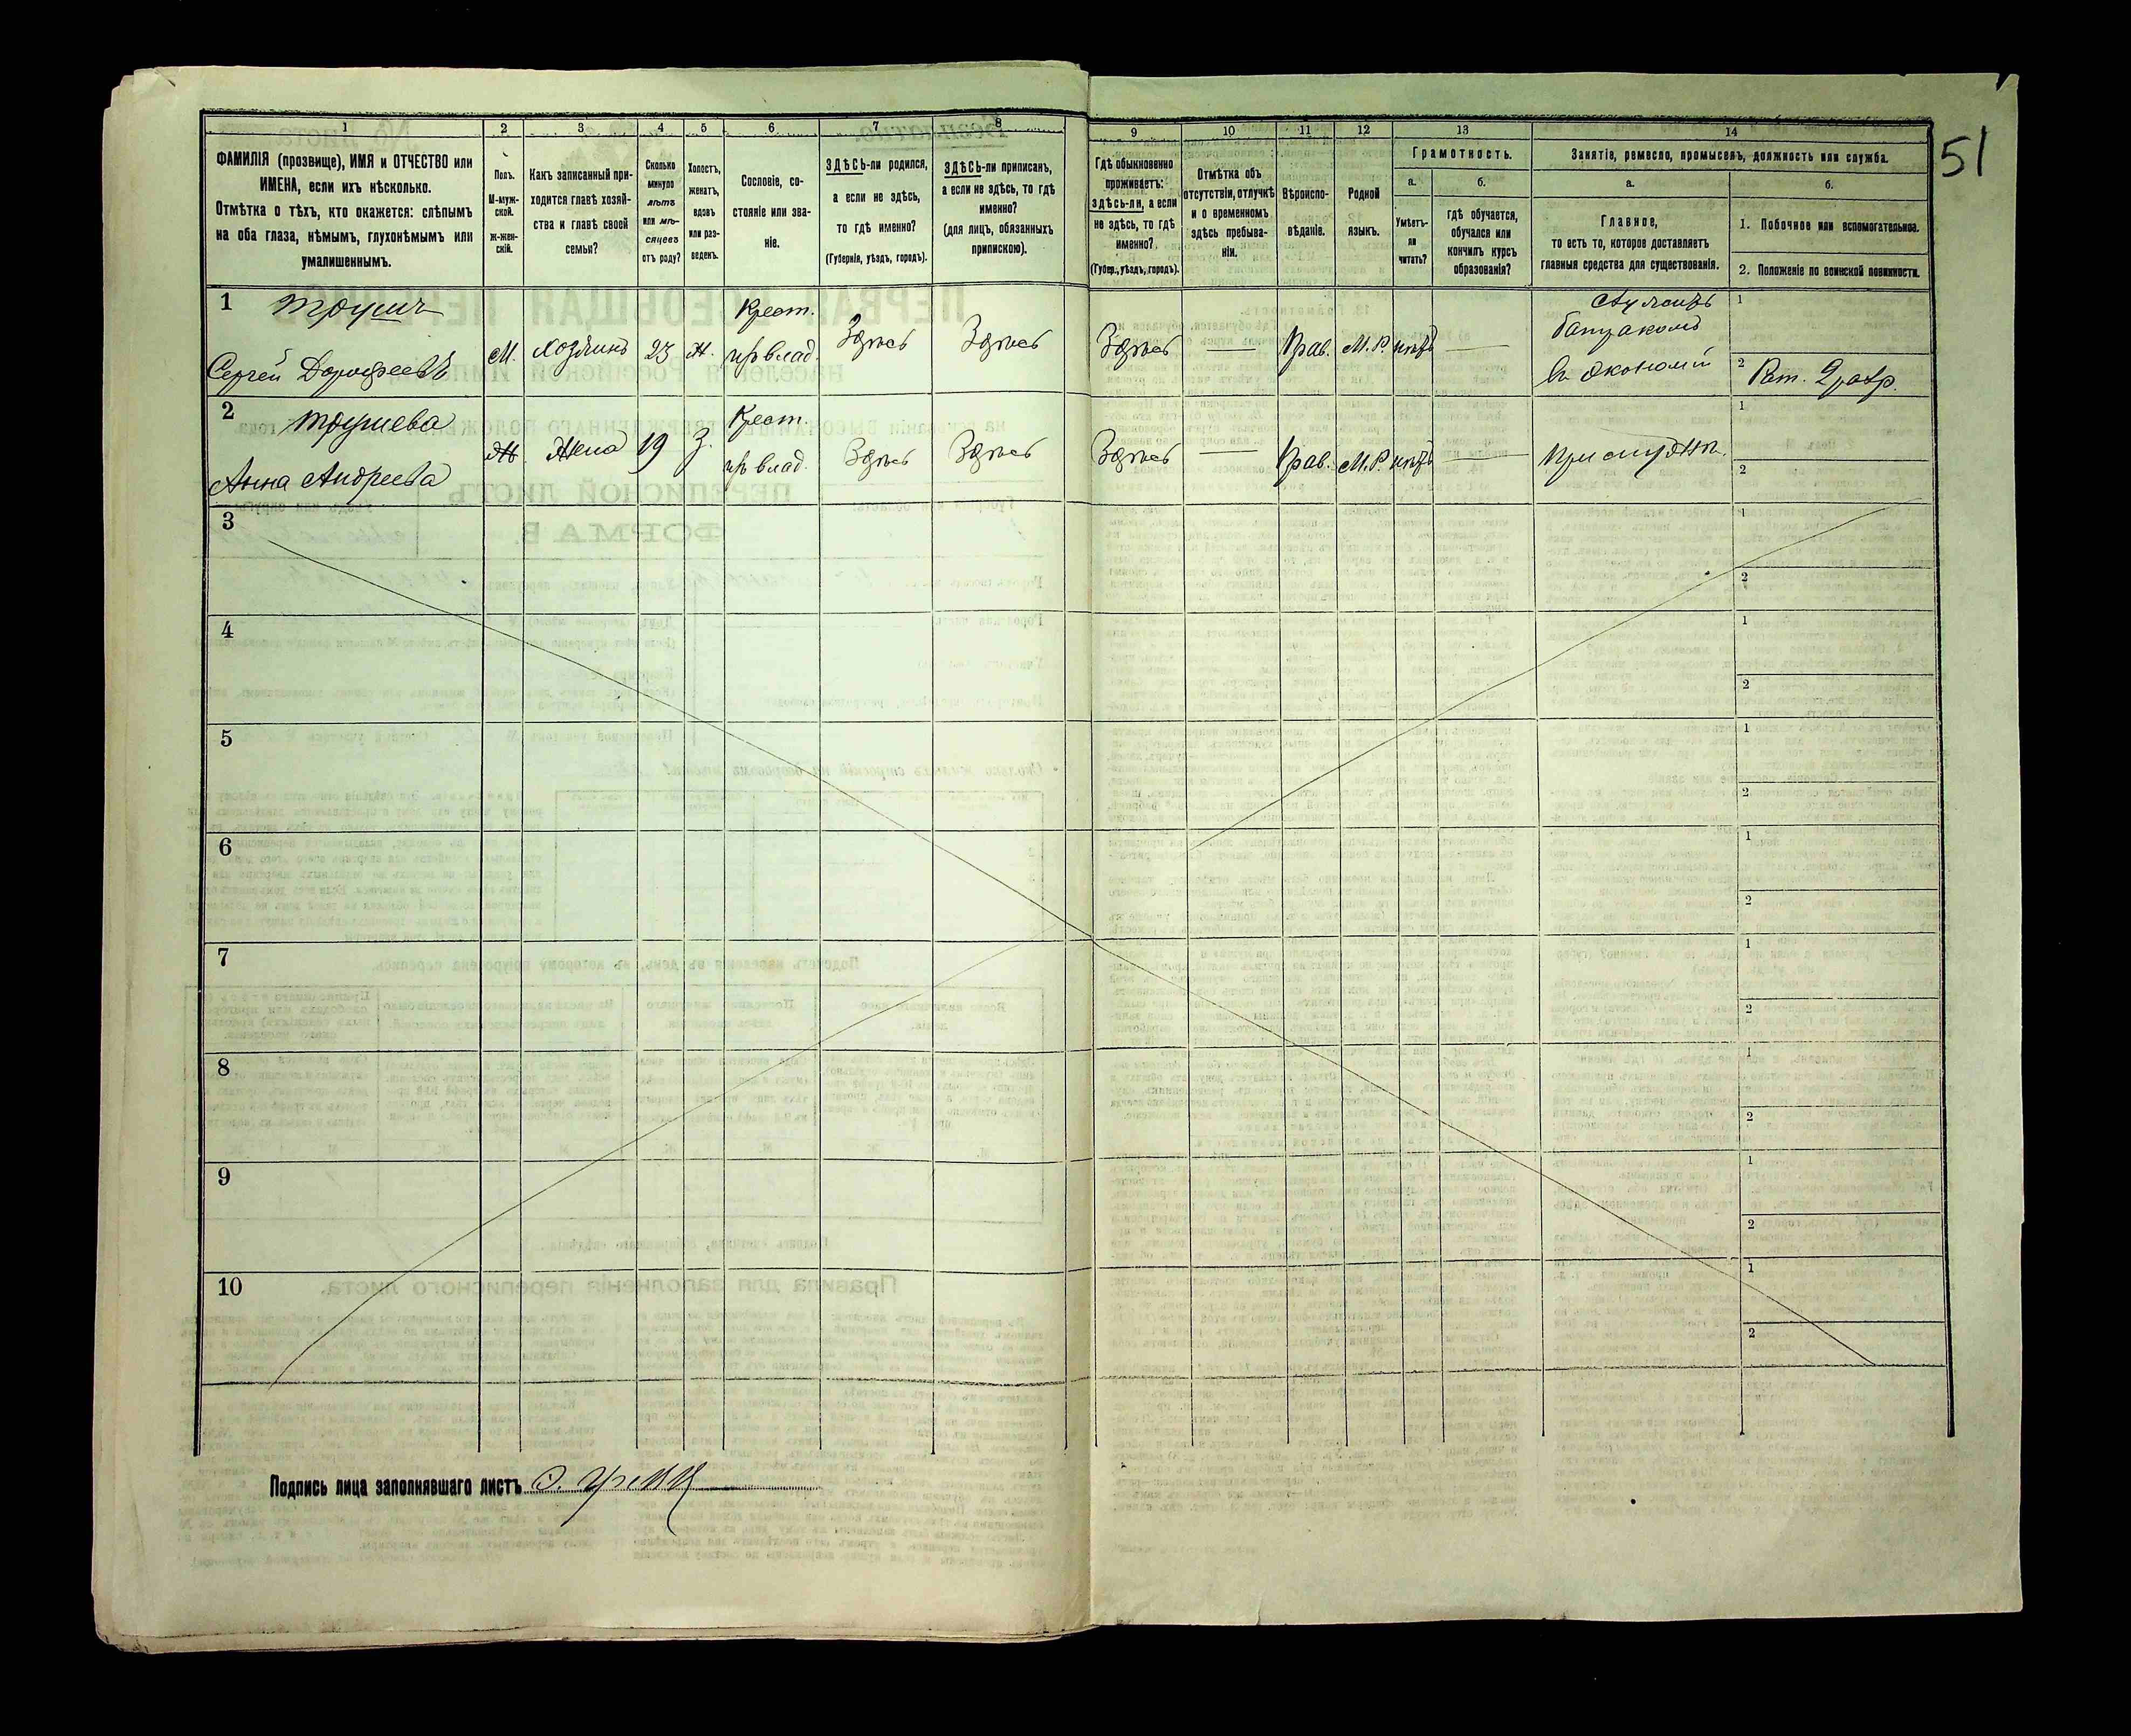 51
1 2 3 4 5 6 7 8 9 10 11 12 13 14
ФАМИЛІЯ (прозвище), ИМЯ и ОТЧЕСТВО или
ИМЕНА, если ихъ нѣсколько.
Отмѣтка о тѣхъ, кто окажется: слѣпымъ
на оба глаза, нѣмымъ, глухонѣмымъ или
умалишеннымъ.
Полъ.
М-муж-
ской.
Ж-жен-
скій.
Какъ записанный при-
ходится главѣ хозяй-
ства и главѣ своей
семьи?
Сколько
минуло
лѣтъ
или мѣ-
сяцевъ
отъ роду?
Холостъ,
женатъ,
вдовъ
или раз-
веденъ.
Сословіе, со-
стояніе или зва-
ніе.
ЗДѢСЬ-ли родился,
а если не здѣсь,
то гдѣ именно?
(Губернія, уѣздъ, городъ).
ЗДѢСЬ-ли приписанъ,
а если не здѣсь, то гдѣ
именно?
(для лицъ, обязанныхъ
припискою).
Гдѣ обыкновенно
проживаетъ:
здѣсь-ли, а если
не здѣсь, то гдѣ
именно?
(Губер., уѣздъ, городъ).
Отмѣтка объ
отсутствіи, отлучкѣ
и о временномъ
здѣсь пребыва-
ніи.
Вѣроиспо-
вѣданіе.
Родной
языкъ.
Грамотность.
а.
Умѣетъ-
ли
читать?
б.
гдѣ обучается,
обучался или
кончилъ курсъ
образованія?
Занятіе, ремесло, промыселъ, должность или служба.
а.
Главное,
то есть то, которое доставляетъ
главныя средства для существованія.
б.
1. Побочное или вспомогательное.
2. Положеніе по воинской повинности.
1
Сергей Дорофеевъ
М. Хозяинъ 23 Ж. Крест.
Здѣсь Здѣсь Здѣсь — Прав. М.Р. нѣтъ —
батракомъ
1
2 Рат. 2 разр.
2
Анна Андреева
Ж. Жена 19 З. Крест.
Здѣсь Здѣсь Здѣсь — Прав. М.Р. нѣтъ —
При мужѣ
1
2
3
1
2
4
1
2
5
1
2
6
1
2
7
1
2
8
1
2
9
1
2
10
1
2
Подпись лица заполнявшаго листъ